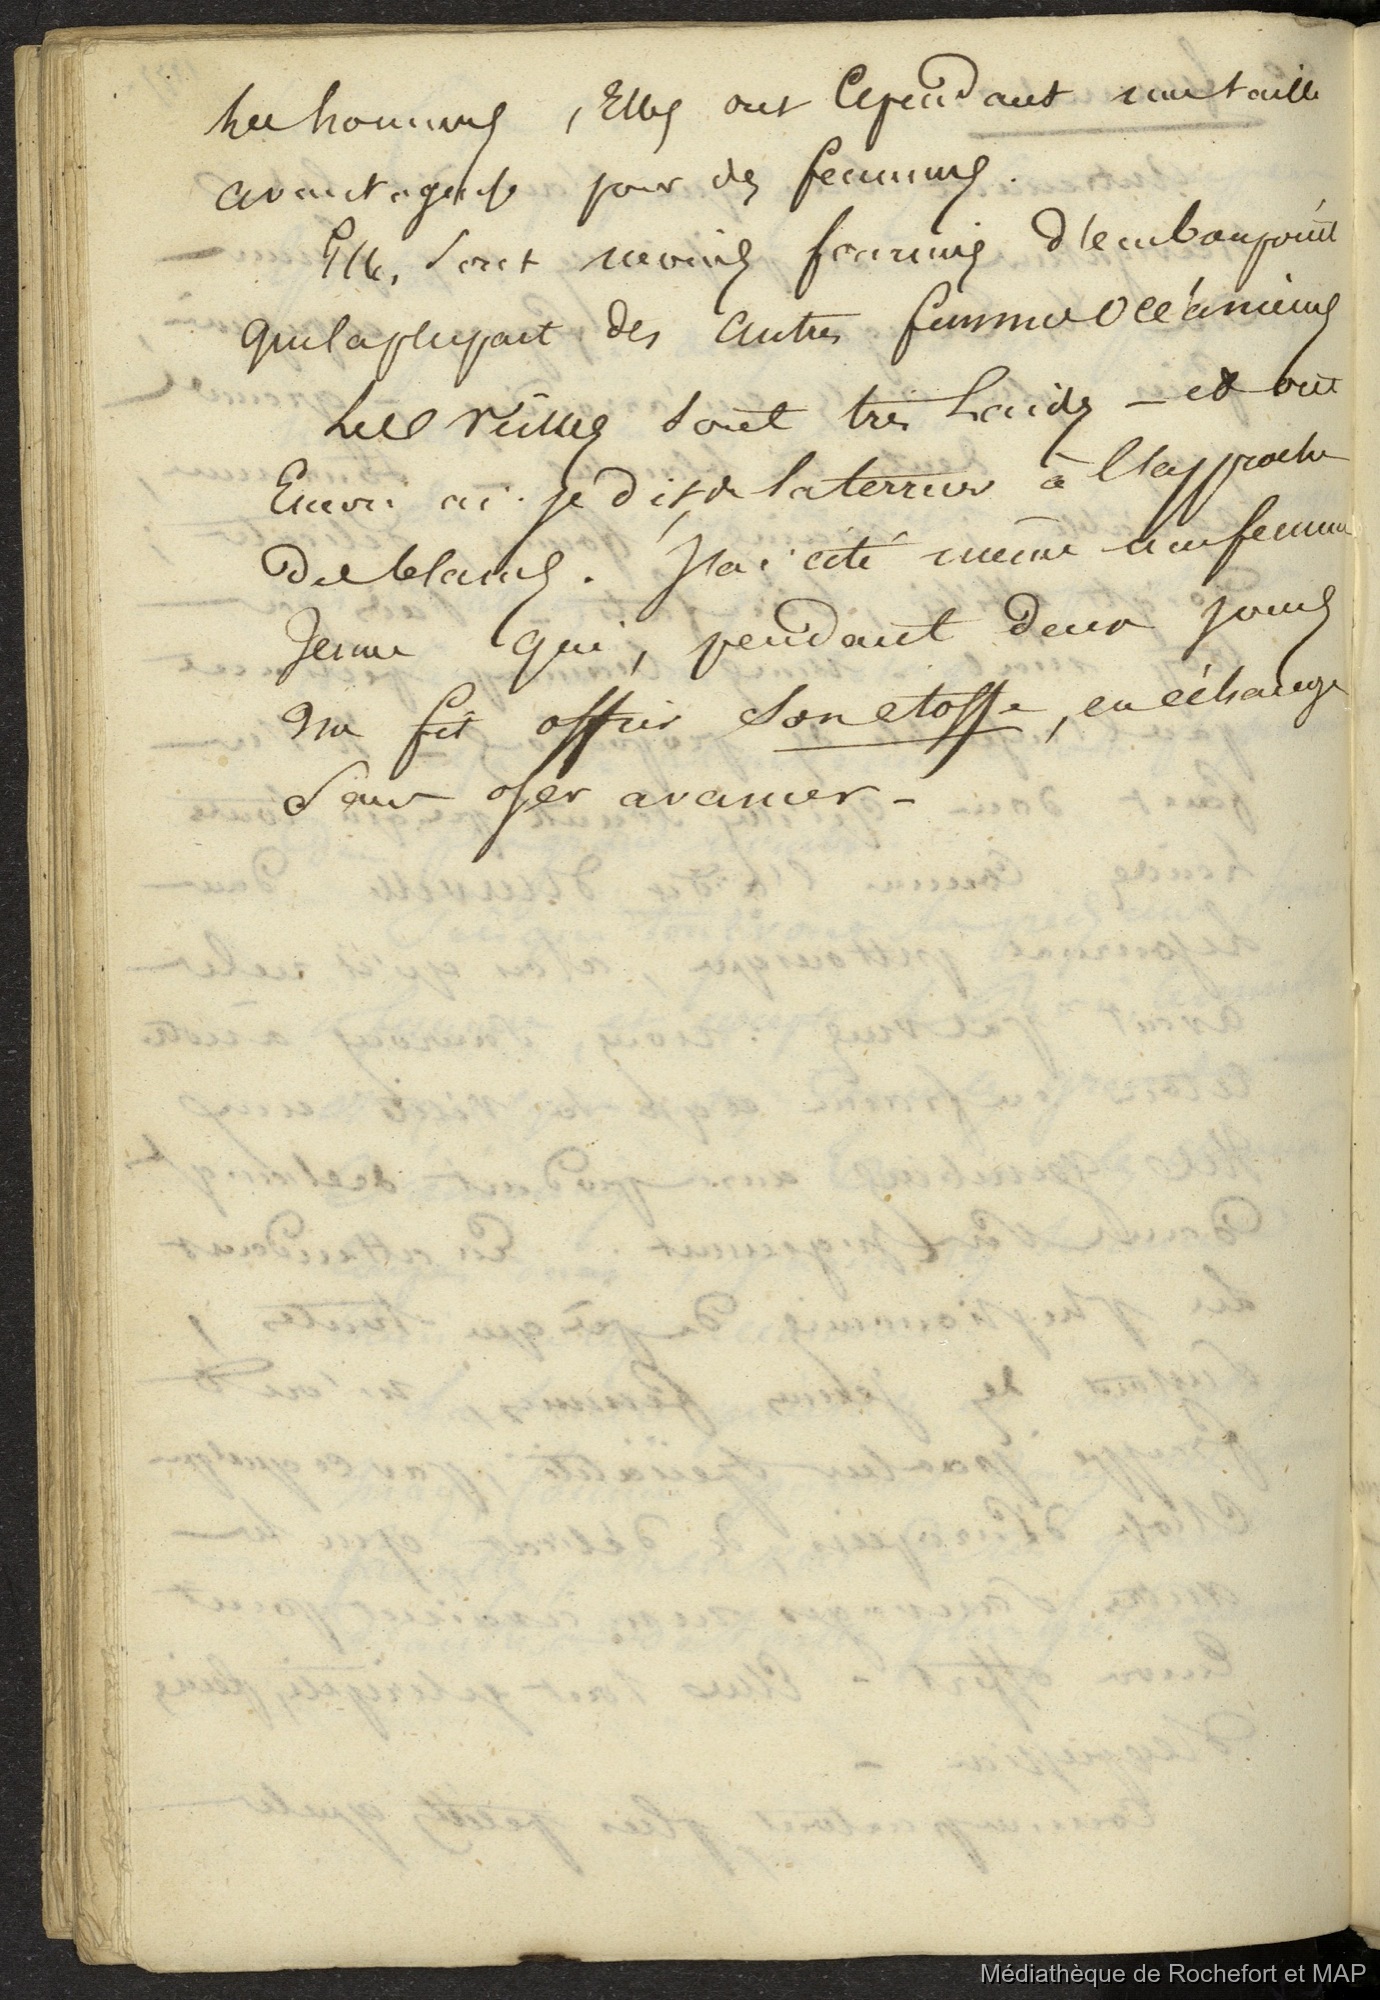 les hommes, Elles ont Cependant une taille
avantageuse pour des femmes.
Elles sont moins fournies d'embonpoint
que la plupart des autres femmes océaniennes
Les vieilles sont très laides - et ont
Encore ai-je dit de la terreur à l'approche
des blancs. J'ai cité même une femme
Jeune qui, pendant deux jours
me fit offrir son étoffe, en échange
sans oser avancer -
Médiathèque de Rochefort et MAP